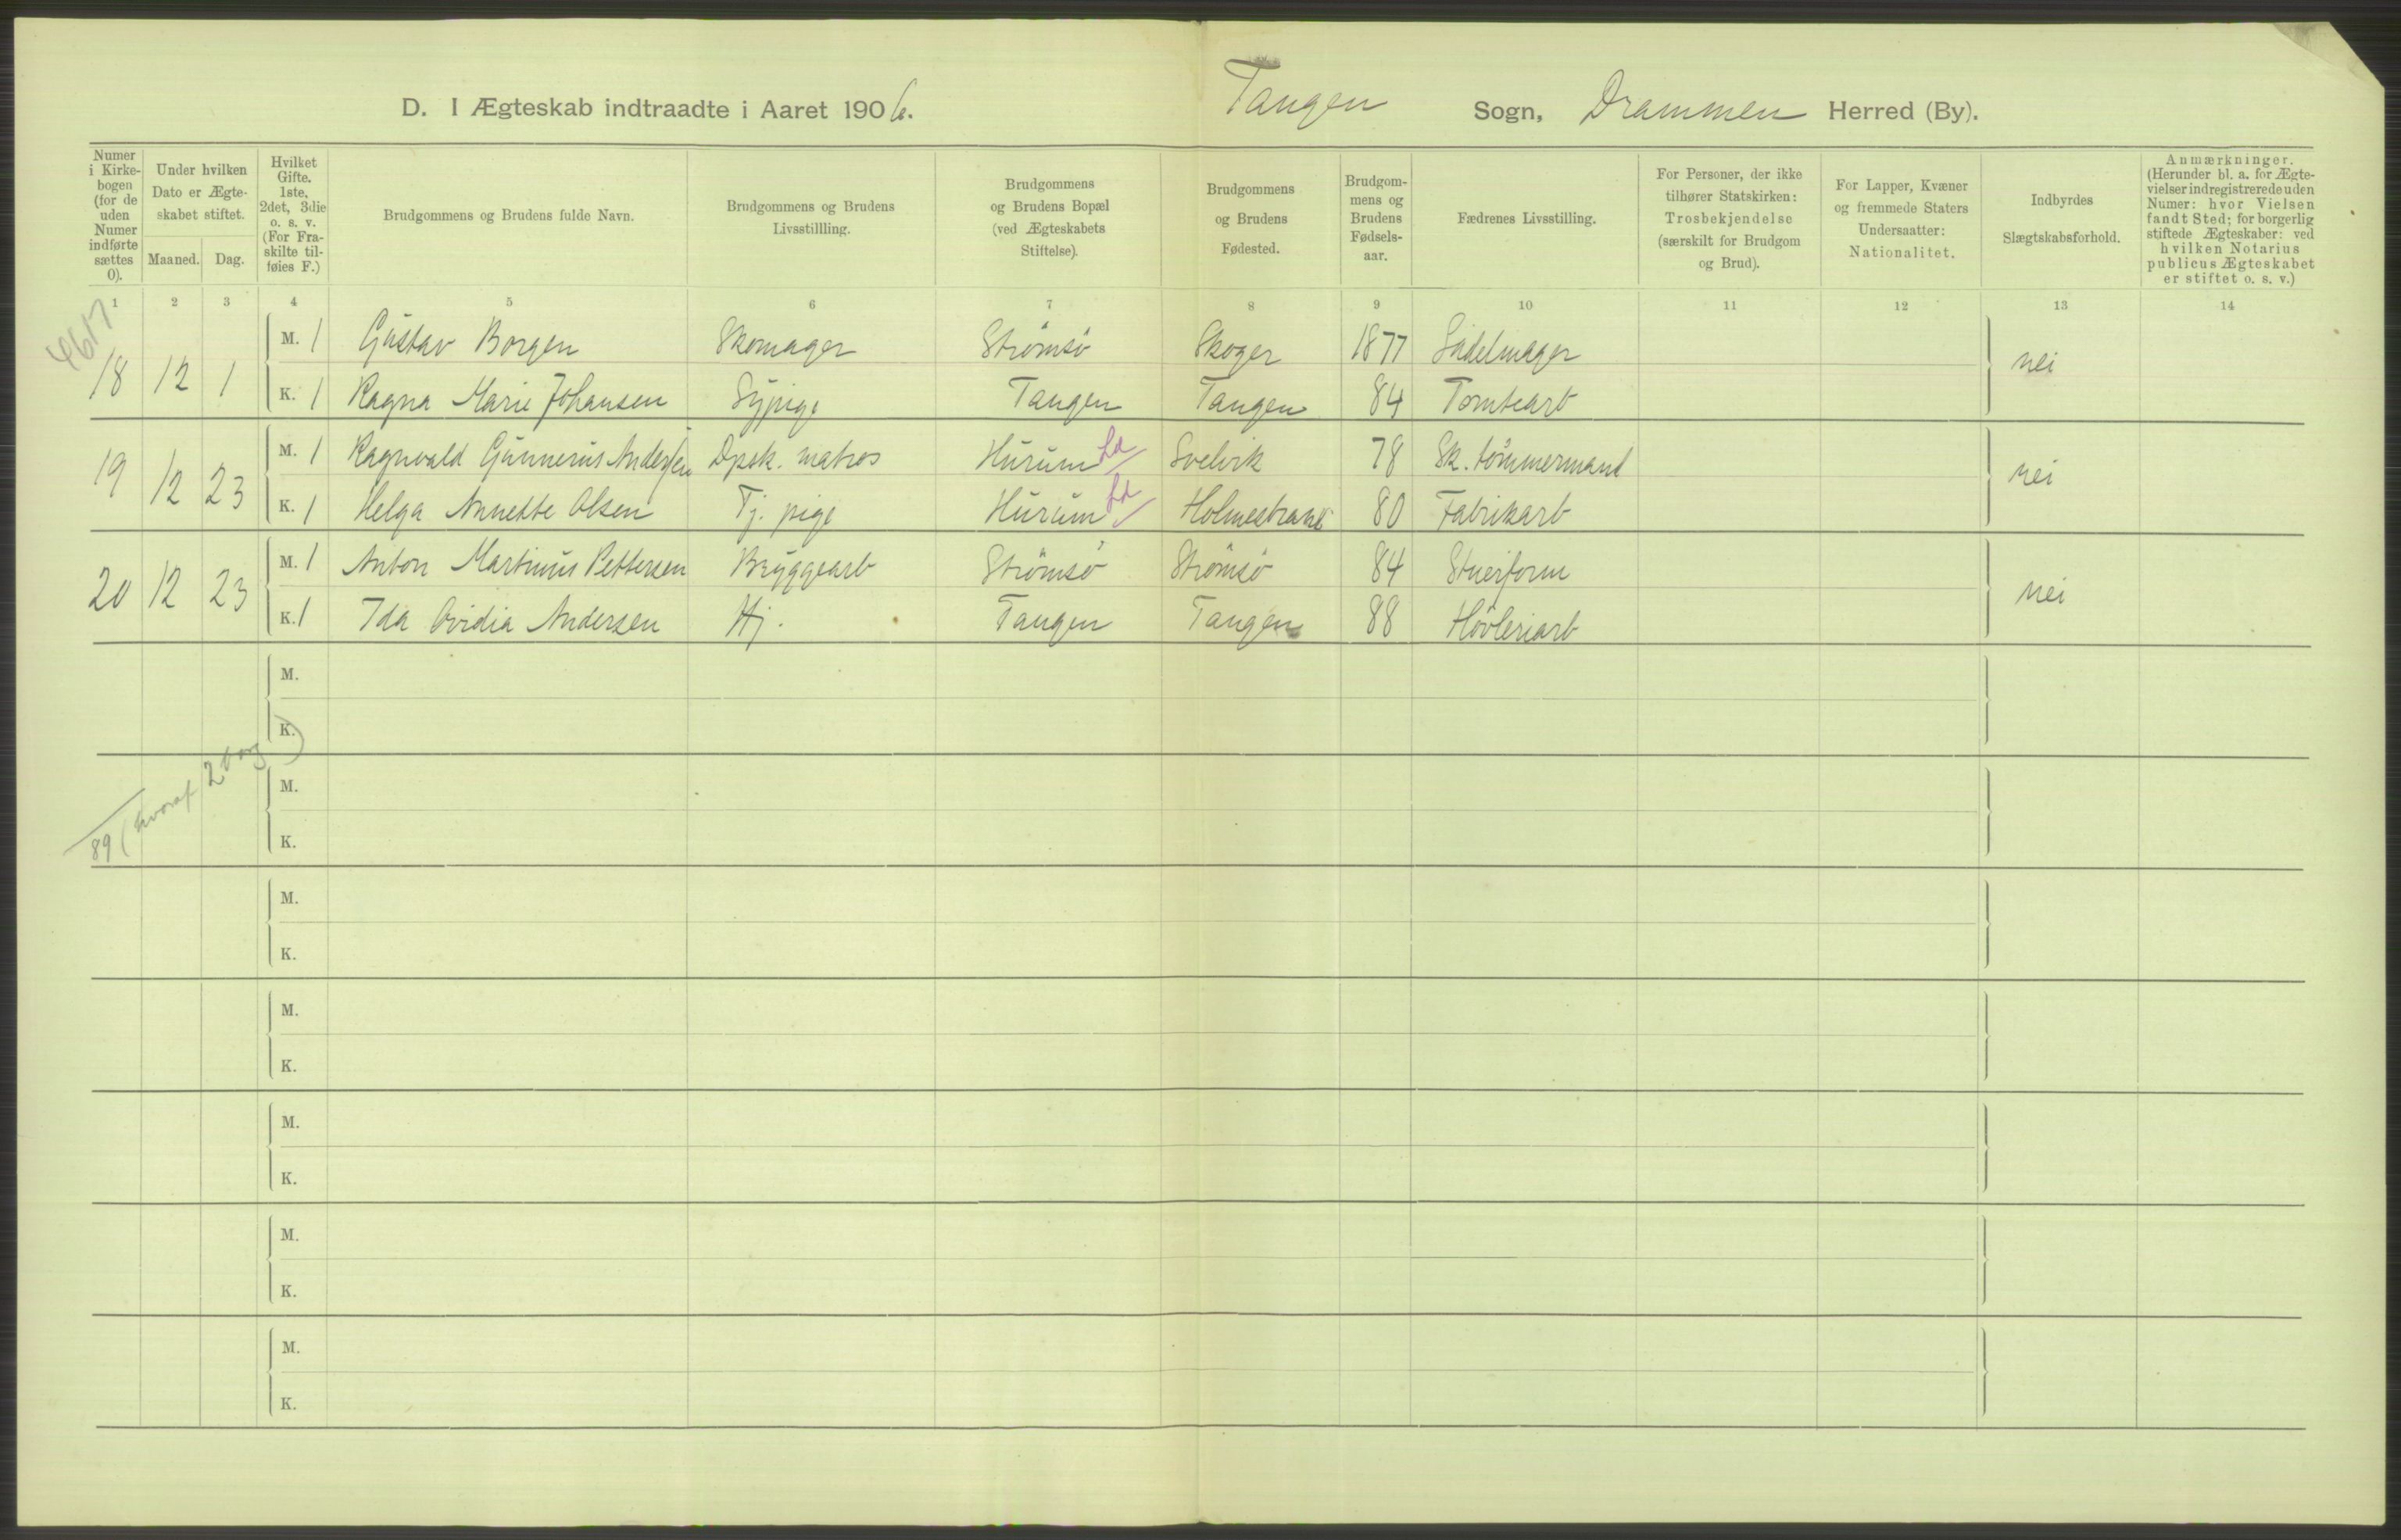 D. I Ægteskab indtraadte i Aaret 1906. Tangen Sogn, Drammen Herred (By).
Numer i Kirkebogen (for de uden Numer indførte sættes 0).
Under hvilken Dato er Ægteskabet stiftet.
Maaned. Dag.
Hvilket Gifte. 1ste, 2det, 3die o. s. v. (For Fraskilte tilføies F.)
Brudgommens og Brudens fulde Navn.
Brudgommens og Brudens Livsstillling.
Brudgommens og Brudens Bopæl (ved Ægteskabets Stiftelse).
Brudgommens og Brudens Fødested.
Brudgommens og Brudens Fødselsaar.
Fædrenes Livsstilling.
For Personer, der ikke tilhører Statskirken: Trosbekjendelse (særskilt for Brudgom og Brud).
For Lapper, Kvæner og fremmede Staters Undersaatter: Nationalitet.
Indbyrdes Slægtskabsforhold.
Anmærkninger. (Herunder bl. a. for Ægtevielser indregistrerede uden Numer: hvor Vielsen fandt Sted; for borgerlig stiftede Ægteskaber: ved hvilken Notarius publicus Ægteskabet er stiftet o. s. v.)
1 2 3 4 5 6 7 8 9 10 11 12 13 14
4617
18 12 1 M. 1 Gustav Borgen Skomager Strømsø Skoger 1877 Sadelmager nei
K. 1 Ragna Marie Johansen Sypige Tangen Tangen 84 Tomtearb
19 12 23 M. 1 Ragnvald Gunnerius Andersen Dpsk. matros Hurum Ld Svelvik 78 Sk. tømmermand nei
K. 1 Helga Annette Olsen Tj. pige Hurum Ld Holmestrand 80 Fabrikarb
20 12 23 M. 1 Anton Martinus Pettersen Bryggearb Strømsø Strømsø 84 Stuerform nei
K. 1 Ida Ovidia Andersen Hj. Tangen Tangen 88 Høvleriarb
M.
K.
89 (hvoraf 2 borg)
M.
K.
M.
K.
M.
K.
M.
K.
M.
K.
M.
K.